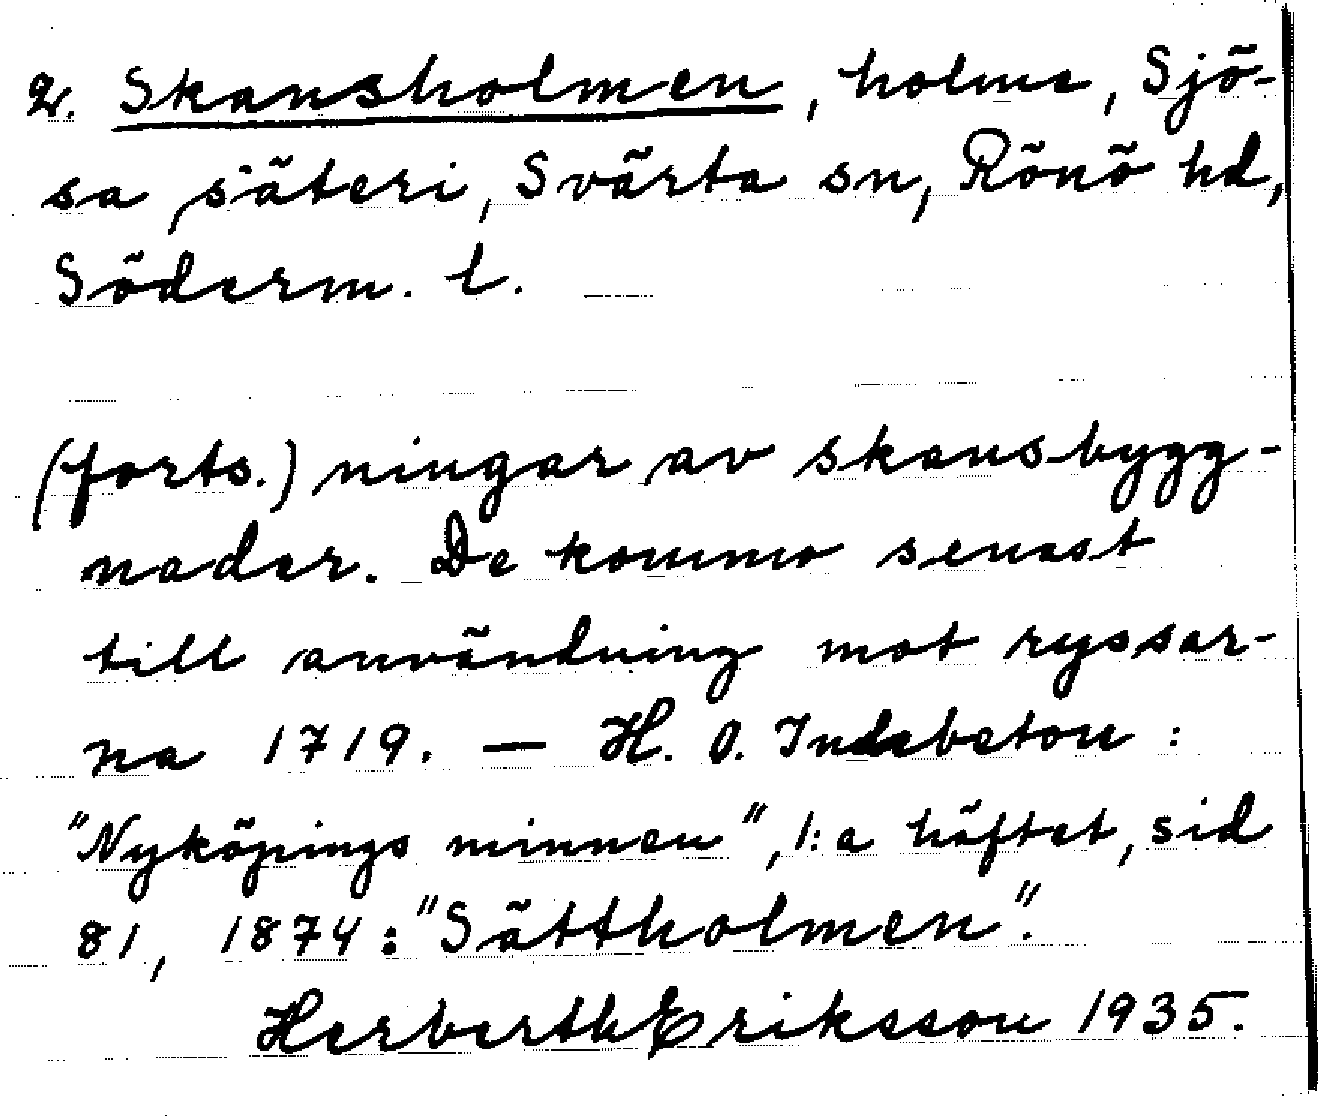 2. Skansholmen, holme, Sjö-
sa säteri, Svärta sn, Rönö hd,
Söderm. l.
(forts.) ningar av skansbygg-
nader. De kommo senast
till användning mot ryssar-
na 1719. — H. O. Indebetou:
"Nyköpings minnen", 1:a häftet, sid
81, 1874: "Sättholmen".
Herberth Eriksson 1935.